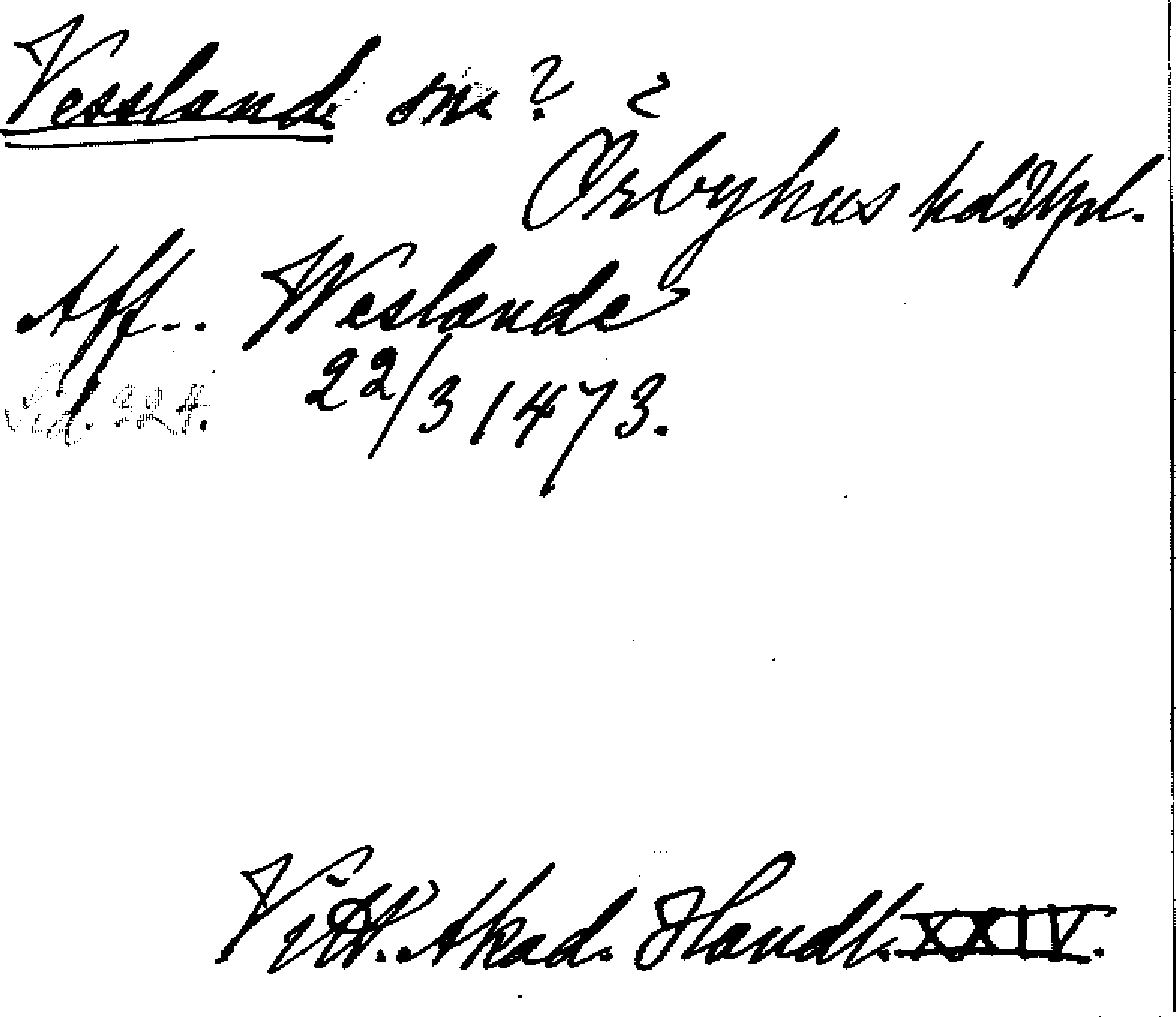 Vessland sn ? ?
Örbyhus hd Upl.
Aff... Weslande
22/3 1473.
Vitt. Akad. Handl. XXIV.